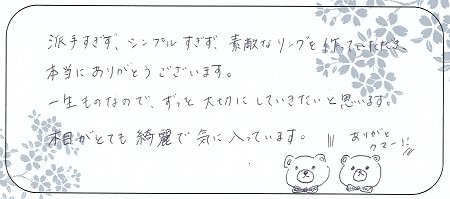 派手すぎず、シンプルすぎず、素敵なリングを作っていただき、
本当にありがとうございます。
一生ものなので、ずっと大切にしていきたいと思います。
木目がとても綺麗で気に入っています。
ありがと
クマー!!